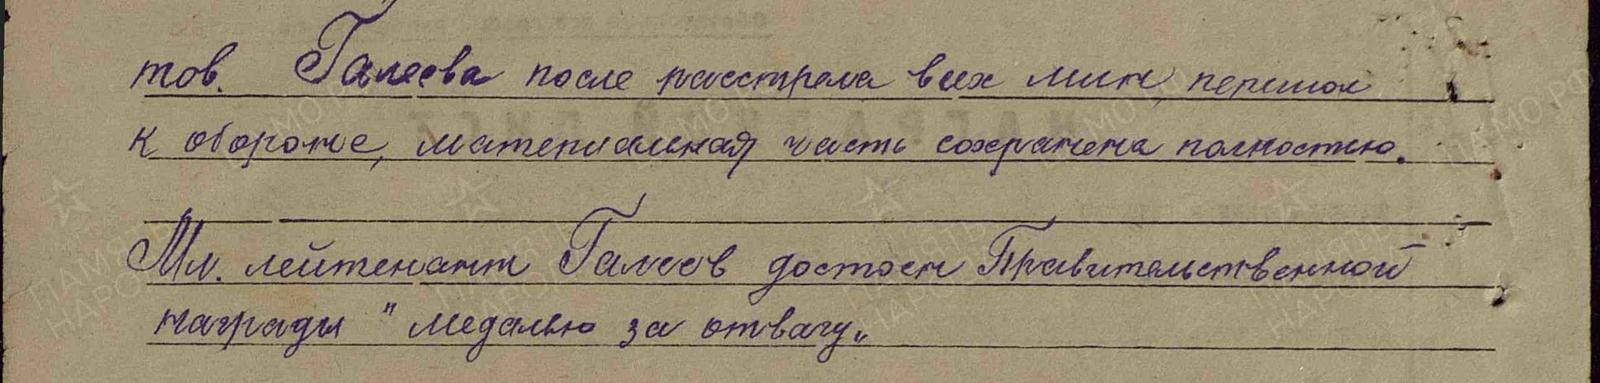 тов. Галеева после расстрела всех мин, перешол
к обороне, материальная часть сохранена полностью.
Мл. лейтенант Галеев достоен Правительственной
награды "медалью за отвагу"